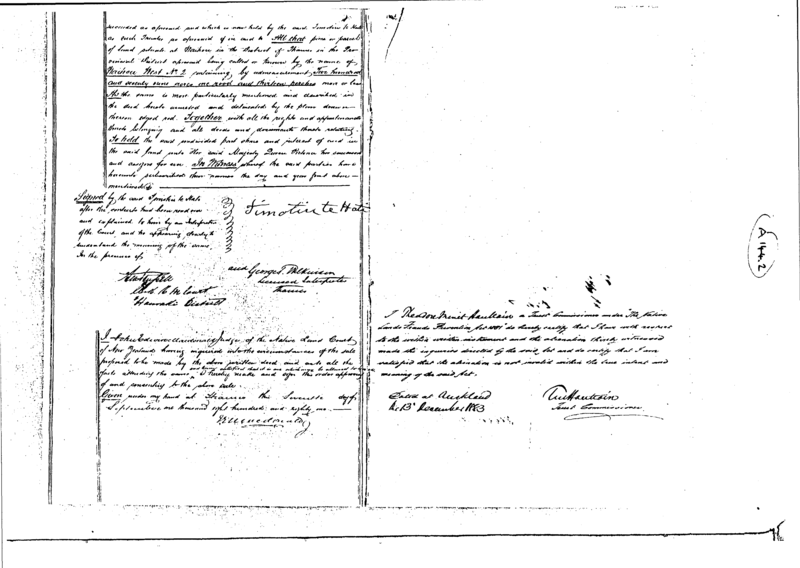 recorded as aforesaid and which is now held by the said Timotiu te Hate
as such Trustee as aforesaid of in and to All that piece or parcel
of Land situate at Waihou in the District of Thames in the Pro-
vincial District aforesaid being called or known by the name of
Waihou West No 2 containing by admeasurement Two hundred
and seventy nine acres one rood and thirteen perches more or less
As the same is more particularly mentioned and described in
the deed hereto annexed and delineated by the plan drawn
thereon edged red. Together with all the rights and appurtenances
thereto belonging and all deeds and documents thereto relating
To hold the said undivided part share and interest of and in
the said land unto Her said Majesty Queen Victoria her successors
and assigns for ever In Witness whereof the said parties have
hereunto subscribed their names the day and year first above
mentioned
Signed by the said Timotiu te Hate
after the contents had been read over
and explained to him by an Interpreter
of the Court, and he appearing clearly to
understand the meaning of the same
In the presence of
Timotiu te Hate
Clerk R. M. Court
Hauraki District
and George T. Wilkinson
Licensed Interpreter
Thames
I John Edwin Macdonald Judge of the Native Land Court
of New Zealand having inquired into the circumstances of the sale
proposed to be made by the above written deed and into all the
facts attending the same
do hereby make and sign this order approving
of and consenting to the above sale.
Given under my hand at Thames this twelfth day of
September one thousand eight hundred and eighty one
J E Macdonald
I Theodore Minet Haultain a Trust Commissioner under The Native
Lands Frauds Prevention Act 1881 do hereby certify that I have with respect
to the within written instrument and the alienation thereby witnessed
made the inquiries directed by the said Act and do certify that I am
satisfied that the alienation is not invalid within the true intent and
meaning of the said Act.
Dated at Auckland
the 13th December 1883
T M Haultain
Trust Commissioner
A 144.2